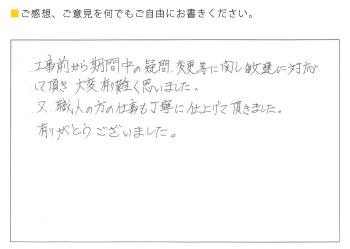 ■ご感想、ご意見を何でもご自由にお書きください。
工事前から期間中の疑問、変更等に関し敏速に対応
して頂き 大変有り難く思いました。
又 職人の方の仕事も丁寧に仕上げて頂きました。
有りがとうございました。